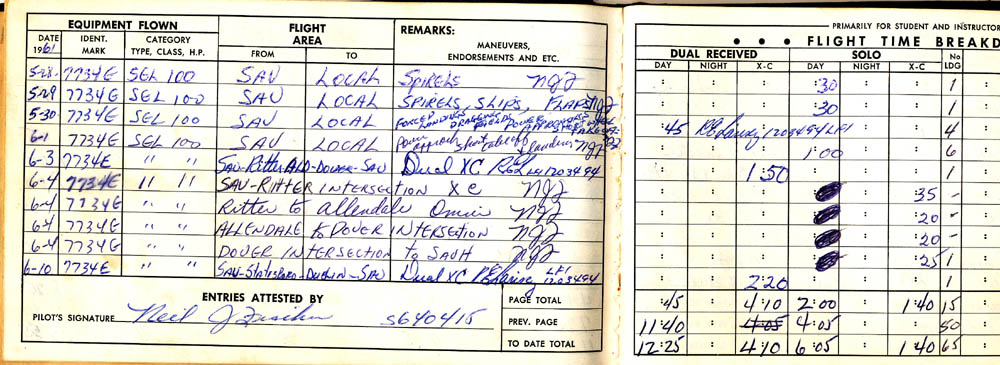 EQUIPMENT FLOWN FLIGHT AREA REMARKS:
DATE 1961 IDENT. MARK CATEGORY TYPE, CLASS, H.P. FROM TO MANEUVERS, ENDORSEMENTS AND ETC.
5-28 7734E SEL 100 SAV LOCAL SPIRELS NJZ
5-29 7734E SEL 100 SAV LOCAL SPIRELS, SLIPS, FLAPS NJZ
5-30 7734E SEL 100 SAV LOCAL FORCED LANDINGS DRAGGING POWER APPROACHES
6-1 7734E SEL 100 SAV LOCAL Power approach short takeoff & landing NJZ
6-3 7734E " " SAV-Ritter-ALD-DOVER-SAV Dual XC 1203494
6-4 7734E " " SAV-RITTER INTERSECTION XC NJZ
6-4 7734E " " Ritter to Allendale Omni NJZ
6-4 7734E " " ALLENDALE to DOVER INTERSECTION NJZ
6-4 7734E " " DOVER INTERSECTION To SAVH NJZ
6-10 7734E " " SAV-Statesboro-Dublin-SAV Dual XC 1203494
ENTRIES ATTESTED BY
PILOT'S SIGNATURE Neil J S640415
PAGE TOTAL
PREV. PAGE
TO DATE TOTAL
PRIMARILY FOR STUDENT AND INSTRUCTOR
• • • FLIGHT TIME BREAKD
DUAL RECEIVED SOLO No LDG
DAY NIGHT X-C DAY NIGHT X-C
:30 1
:30 1
:45 1203494 4
1:00 6
1:50 1
:35 -
:20 -
:20 -
:25 1
2:20 1
:45 4:10 2:00 1:40 15
11:40 4:05 4:05 50
12:25 4:10 6:05 1:40 65